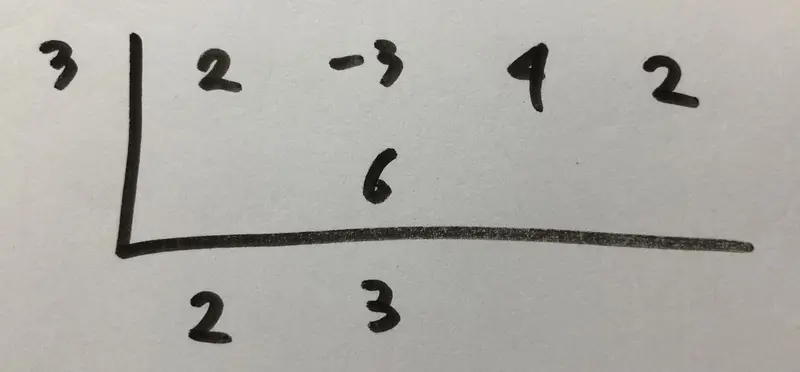 3 2 -3 4 2
6
2 3